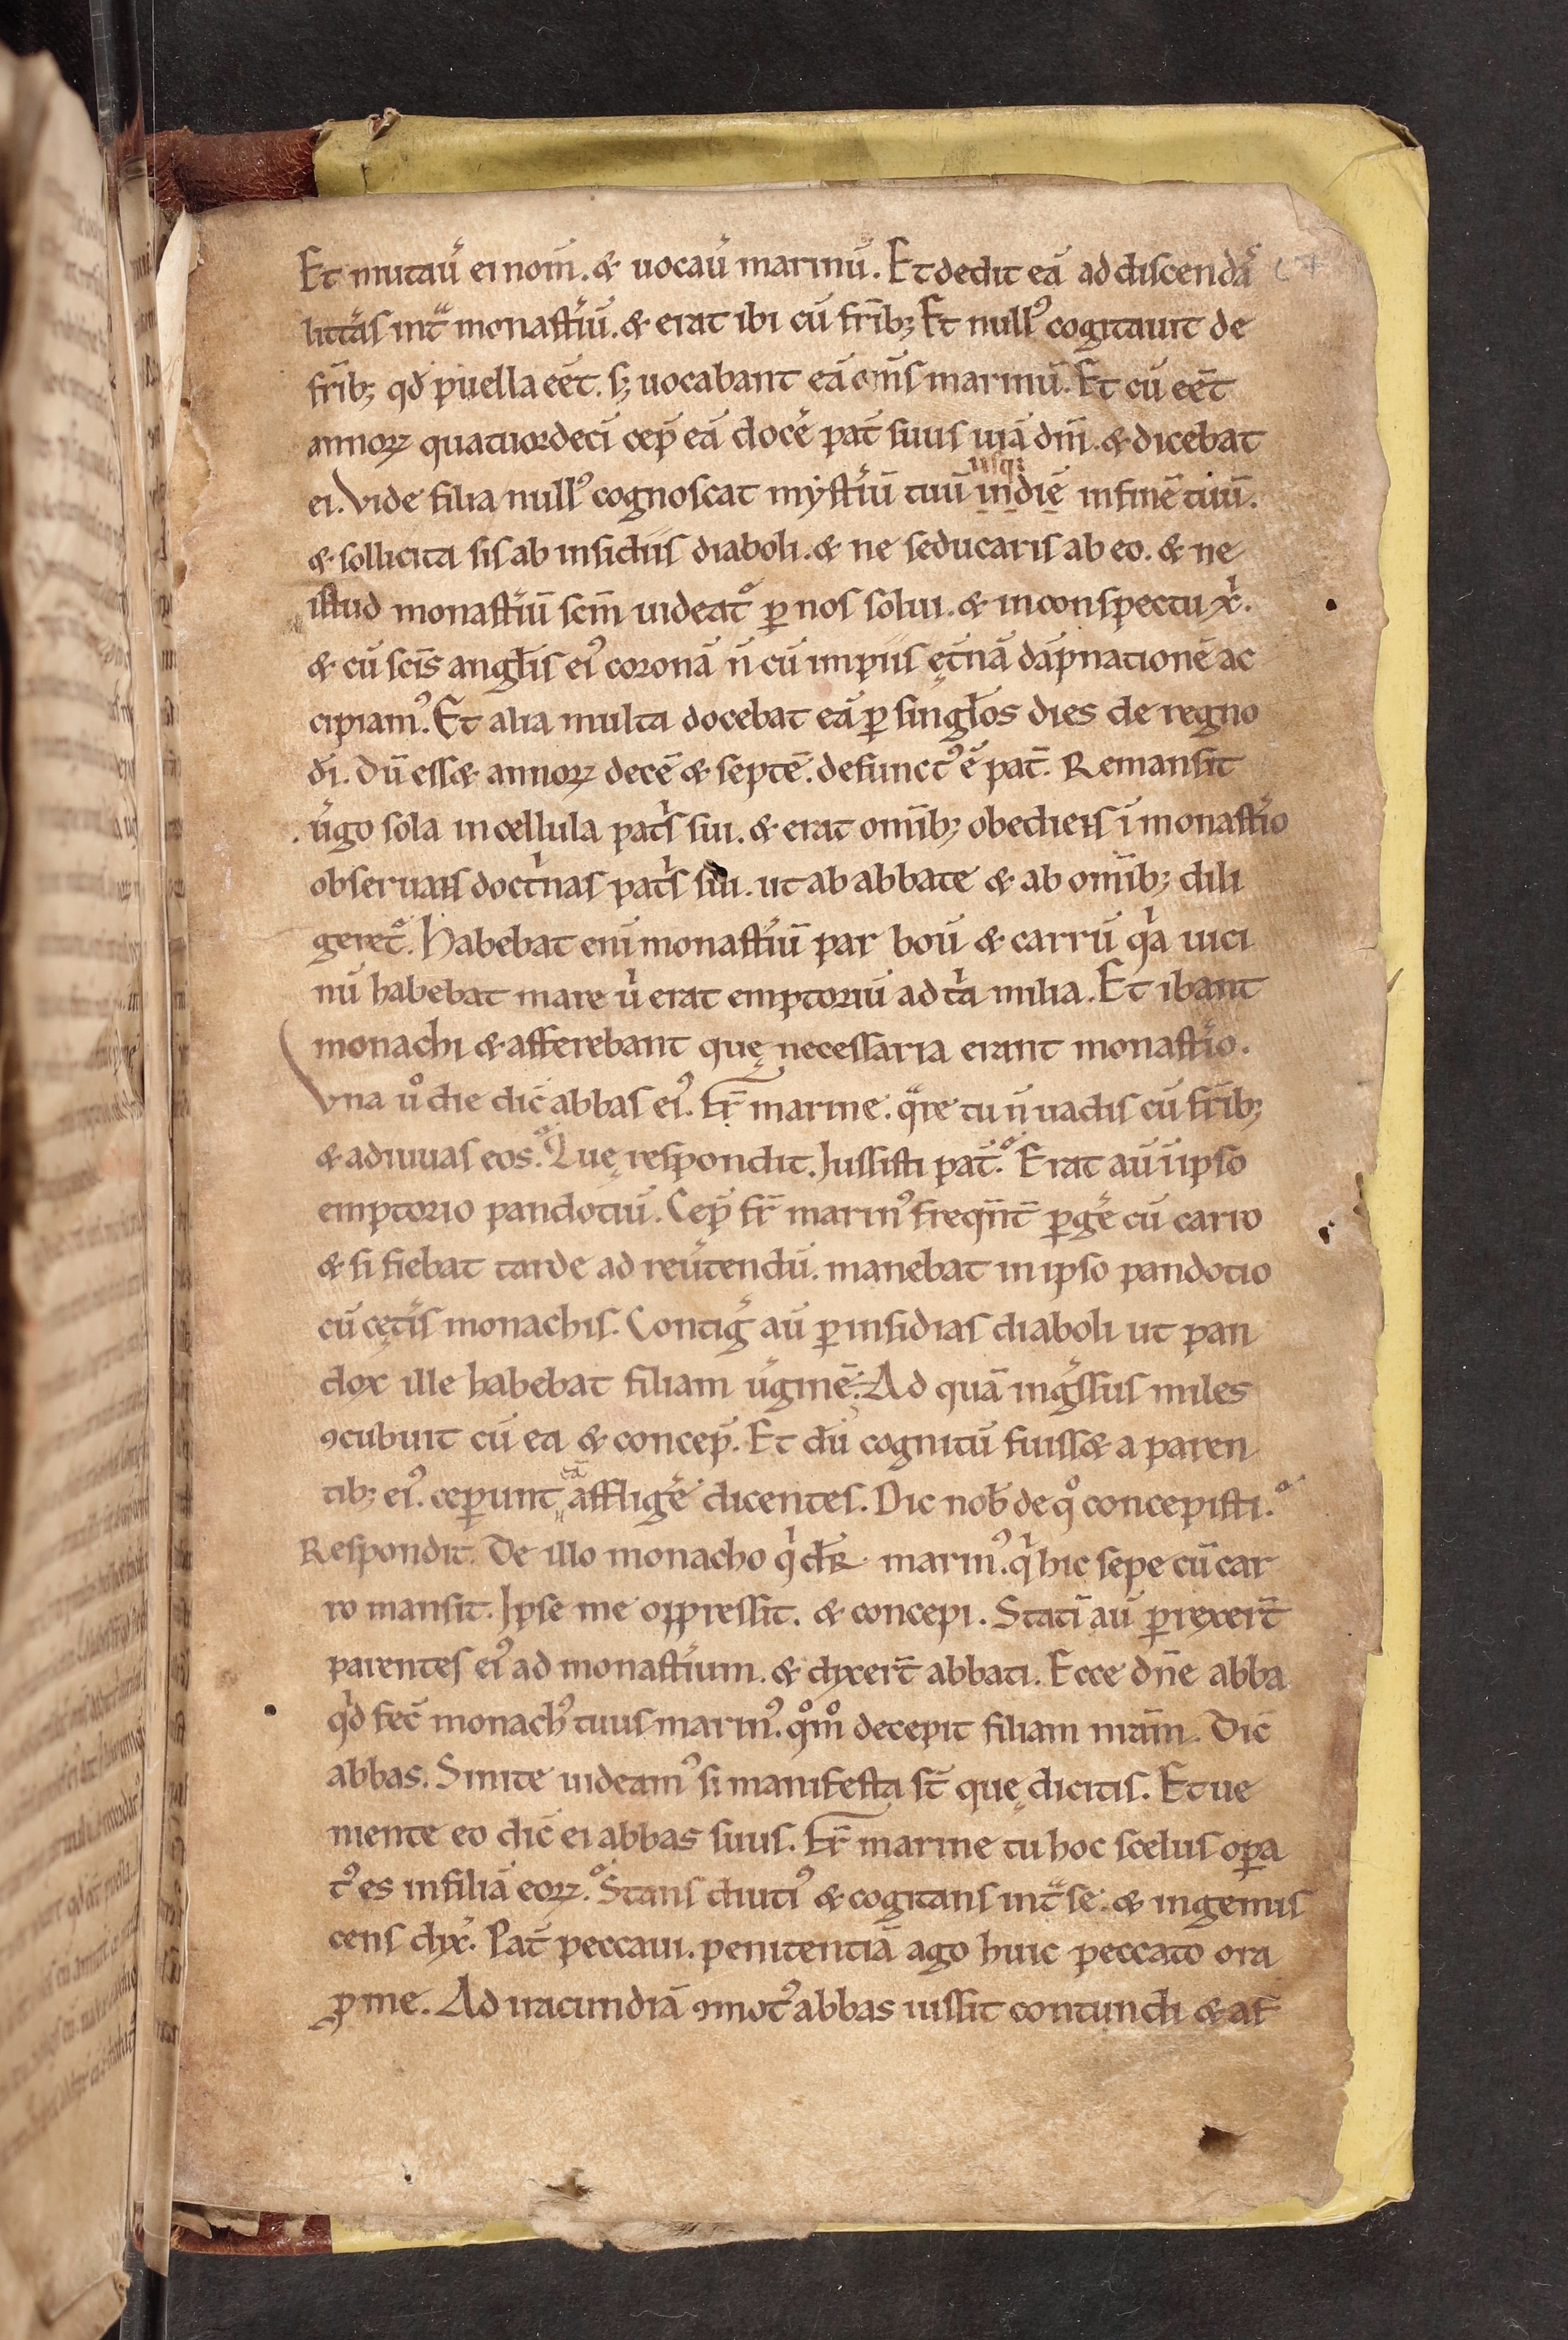 Et mutau̅ ei nom̅. & uocau̅ marinu̅. Et dedit ea̅ ad discenda̅
litt̅as int̅ monast̅iu̅. & erat ibi cu̅ fr̅ib; Et nullꝰ cogitauit de
fr̅ib; qd̅ puella ee̅t. s; uocabant ea̅ om̅s marinu̅. Et cu̅ ee̅t
annoꝝ quatuordeci̅ cep̅ ea̅ doce̅ pat̅ suus uia̅ dn̅i. & dicebat
usq;
ei. Vide filia nullꝰ cognoscat myst̅iu̅ tuu̅ in die̅ in fine̅ tuu̅.
& sollicita sis ab insidiis diaboli. & ne seducaris ab eo. & ne
istud monast̅iu̅ sc̅m uideat᷑ ꝑ nos solui. & in conspectu xp̅i.
& cu̅ sc̅is angl̅is eiꝰ corona̅ n̅ cu̅ impiis ęt̅na̅ da̅pnatione̅ ac
cipiamꝰ. Et alia multa docebat ea̅ ꝑ singl̅os dies de regno
di̅. Du̅ ess& annoꝝ dece̅ & septe̅. defunctꝰ e̅ pat̅. Remansit
u̅go sola in cellula pat̅s sui. & erat om̅ib; obediens i̅ monast̅io
obseruans doct̅nas pat̅s sui. ut ab abbate & ab om̅ib; dili
geret᷑. Habebat eni̅ monast̅iu̅ par bou̅ & carru̅ qͥa uici
nu̅ habebat mare uͥ erat emptoriu̅ ad tͥa milia. Et ibant
monachi & afferebant quę necessaria erant monast̅io.
Vna uͦ die dic̅ abbas eiꝰ. Fr̅ marine. qͣre tu n̅ uadis cu̅ fr̅ib;
& adiuuas eos. Quę respondit. Iussisti pat̅. Erat au̅ i̅ ipso
emptorio pandotiu̅. Cep̅ fr̅ marinꝰ freqn̅t̅ ꝑge̅ cu̅ carro
& si fiebat tarde ad reu̅tendu̅. manebat in ipso pandotio
cu̅ cęt̅is monachis. Contig̅ au̅ ꝑ insidias diaboli ut pan
dox ille habebat filiam u̅gine̅. Ad qua̅ ing̅ssus miles
ꝯcubuit cu̅ ea & concep̅. Et du̅ cognitu̅ fuiss& a paren
ea̅
tib; eiꝰ. ceperunt afflige̅ dicentes. Dic nob̅ de qͦ concepisti.
Respondit. De illo monacho qͥ dr̅ marinꝰ. qͥ hic sepe cu̅ car
ro mansit. Ipse me oppressit. & concepi. Stati̅ au̅ ꝑrexert̅
parentes eiꝰ ad monast̅ium. & dyxert̅ abbati. Ecce dn̅e abba
qͥd fec̅ monachꝰ tuus marinꝰ. qͦmͦ decepit filiam nr̅am. Dic̅
abbas. Sinite uideamꝰ si manifesta st̅ quę dicitis. Et ue
niente eo dic̅ ei abbas suus. Fr̅ marine tu hoc scelus oꝑa
tꝰ es in filia̅ eoꝝ. Stans diutiꝰ & cogitans int̅ se. & ingemis
cens dyx̅. Pat̅ peccaui. penitentia̅ ago huic peccato ora
ꝓ me. Ad iracundia̅ ꝯmotꝰ abbas iussit contundi & af